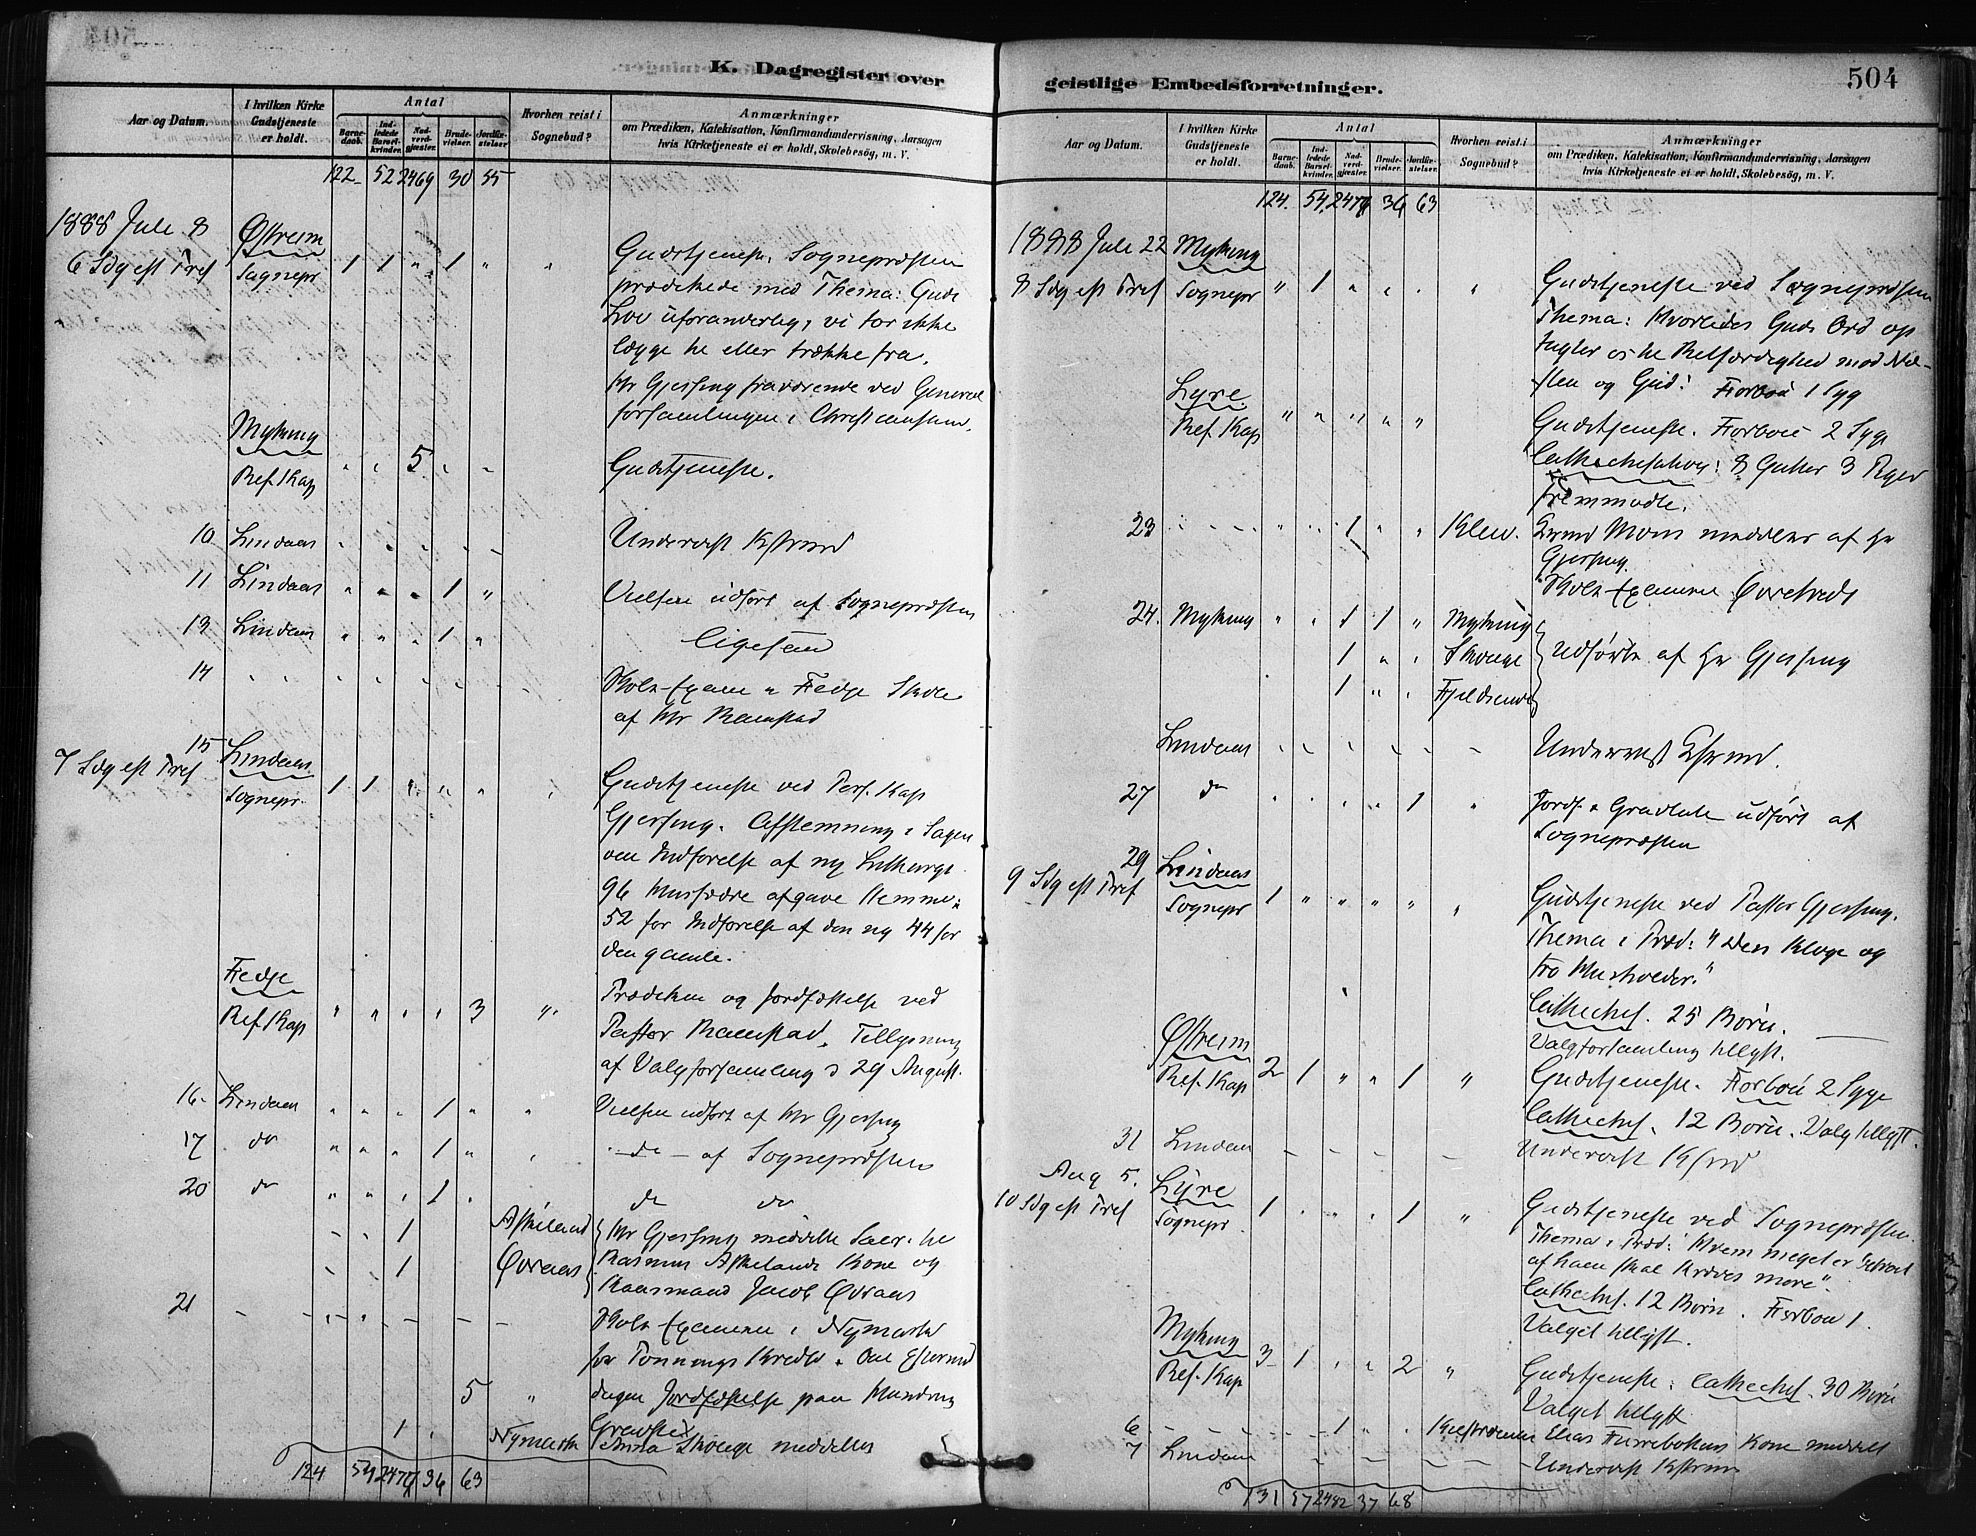 K. Dagregister over
Aar og Datum.
I hvilken Kirke Gudstjeneste er holdt.
Antal
Barnedaab.
Indledede Barselkvinder.
Nadverdgjester.
Brudevielser.
Jordfæstelser
Hvorhen reist i Sognebud?
Anmærkninger
om Prædiken, Katekisation, Konfirmandundervisning, Aarsagen
hvis Kirketjeneste ei er holdt, Skolebesög, m. V.
122 52 2469 30 55
1888 Juli 8 Østreim
6 Sdg eft Tref Sognepr 1 1 " 1 " " Gudstjeneste. Sognepræsten
prædikede med Thema: Guds
Lov uforanderlig, vi tør ikke
lægge til eller trække fra.
Hr Gjessing fraværende ved General
forsamlingen i Christianssund.
Myking
Ref. Kap " " 5 " " Gudstjeneste.
10 Lindaas Underviist Kfirmd
11 Lindaas " " " 1 " Vielsen udført af Sognepræsten
13 Lindaas " " " 1 " Ligesaa
14 Skole Examen i Fedje Skole
af Hr Ramstad
15 Lindaas
7 Sdg eft Tref Sognepr. 1 1 " " " Gudstjeneste ved Pers. Kap
Gjessing. Afstemning i Sagen
om Indførelse af ny Liturgi
96 Husfædre afgave Stemme:
52 for Indførelse af den ny 44 for
den gamle.
Fedje
Ref. Kap " " " " 3 " Prædiken og Jordfæstelse ved
Pastor Ramstad. Tillysning
af Valgforsamling d 29 August.
16. Lindaas " " " 1 " " Vielsen udført af Hr Gjessing
17. do " " " 1 " - do - af Sognepræsten
20 do " " " 1 " do do
1 Askeland Hr Gjessing meddelte Sacr. til
1 Øvraas Rasmus Askelands Kone og
Kaarmand Jacob Øvraas
21 Skole Examen i Nymark
for Tonnings Kreds. Om Eftermid
5 " dagen Jordfæstelse paa
1 Nymark Anna Skouge meddeltes
124 54 2476 36 63
geistlige Embedsforretninger.
504
Aar og Datum.
I hvilken Kirke Gudstjeneste er holdt.
Antal
Barnedaab.
Indledede Barselkvinder.
Nadverdgjester.
Brudevielser.
Jordfæstelser.
Hvorhen reist i Sognebud?
Anmærkninger
om Prædiken, Katekisation, Konfirmandundervisning, Aarsagen
hvis Kirketjeneste ei er holdt, Skolebesög, m. V.
124. 54 2476 36 63
1888 Juli 22 Myking
8 Sdg eft Tref Sognepr " 1 " " " " Gudstjeneste ved Sognepræsten
Thema: Hvorledes Guds Ord op
tugter os til Retfærdighed mod Næ-
sten og Gud: Forbøn 1 Syg
Lyre
Ref. Kap " " " " " Gudstjeneste. Forbøn 2 Syge
Cathechisation: 8 Gutter 3 Piger
fremmødte.
23 1 " " Klev. Mons meddelt af Hr
Gjessing.
Skole Examen Øvretveds
24. Myking " " 1 1 " Myking
1 " " Skouge Udførte af Hr Gjessing
1 " " Fjeldsende
Lindaas Underviist Kfirmd.
27 do " " " " 1 " Jordf. & Gravtale udført af
Sognepræsten
29 Lindaas
9 Sdg eft Tref Sognepr 1 " " " " " Gudstjeneste ved Pastor Gjessing.
Thema i Præd: "Den kloge og
tro Husholder."
Cathechef. 25 Børn.
Valgforsamling tillyst.
Østreim
Ref. Kap 2 1 " " 1 " Gudstjeneste. Forbøn 2 Syge
Cathechef. 12 Børn. Valg tillyst.
31 Lindaas Underviist Kfirmd
Aug 5. Lyre
10 Sdg eft Tref Sognepr 1 " " " 1 " Gudstjeneste ved Sognepræsten.
Thema i Præd: "Hvem meget er betroet
af ham skal kræves mere".
Cathechef. 12 Børn. Forbøn 1.
Valget tillyst.
Myking
Ref. Kap 3 1 " " 2 " Gudstjeneste. Cathechef. 30 Børn
Valget tillyst
6 1 Elias Kone meddelt
7 Lindaas Underviist Kfirmd
131 57 2482 37 68